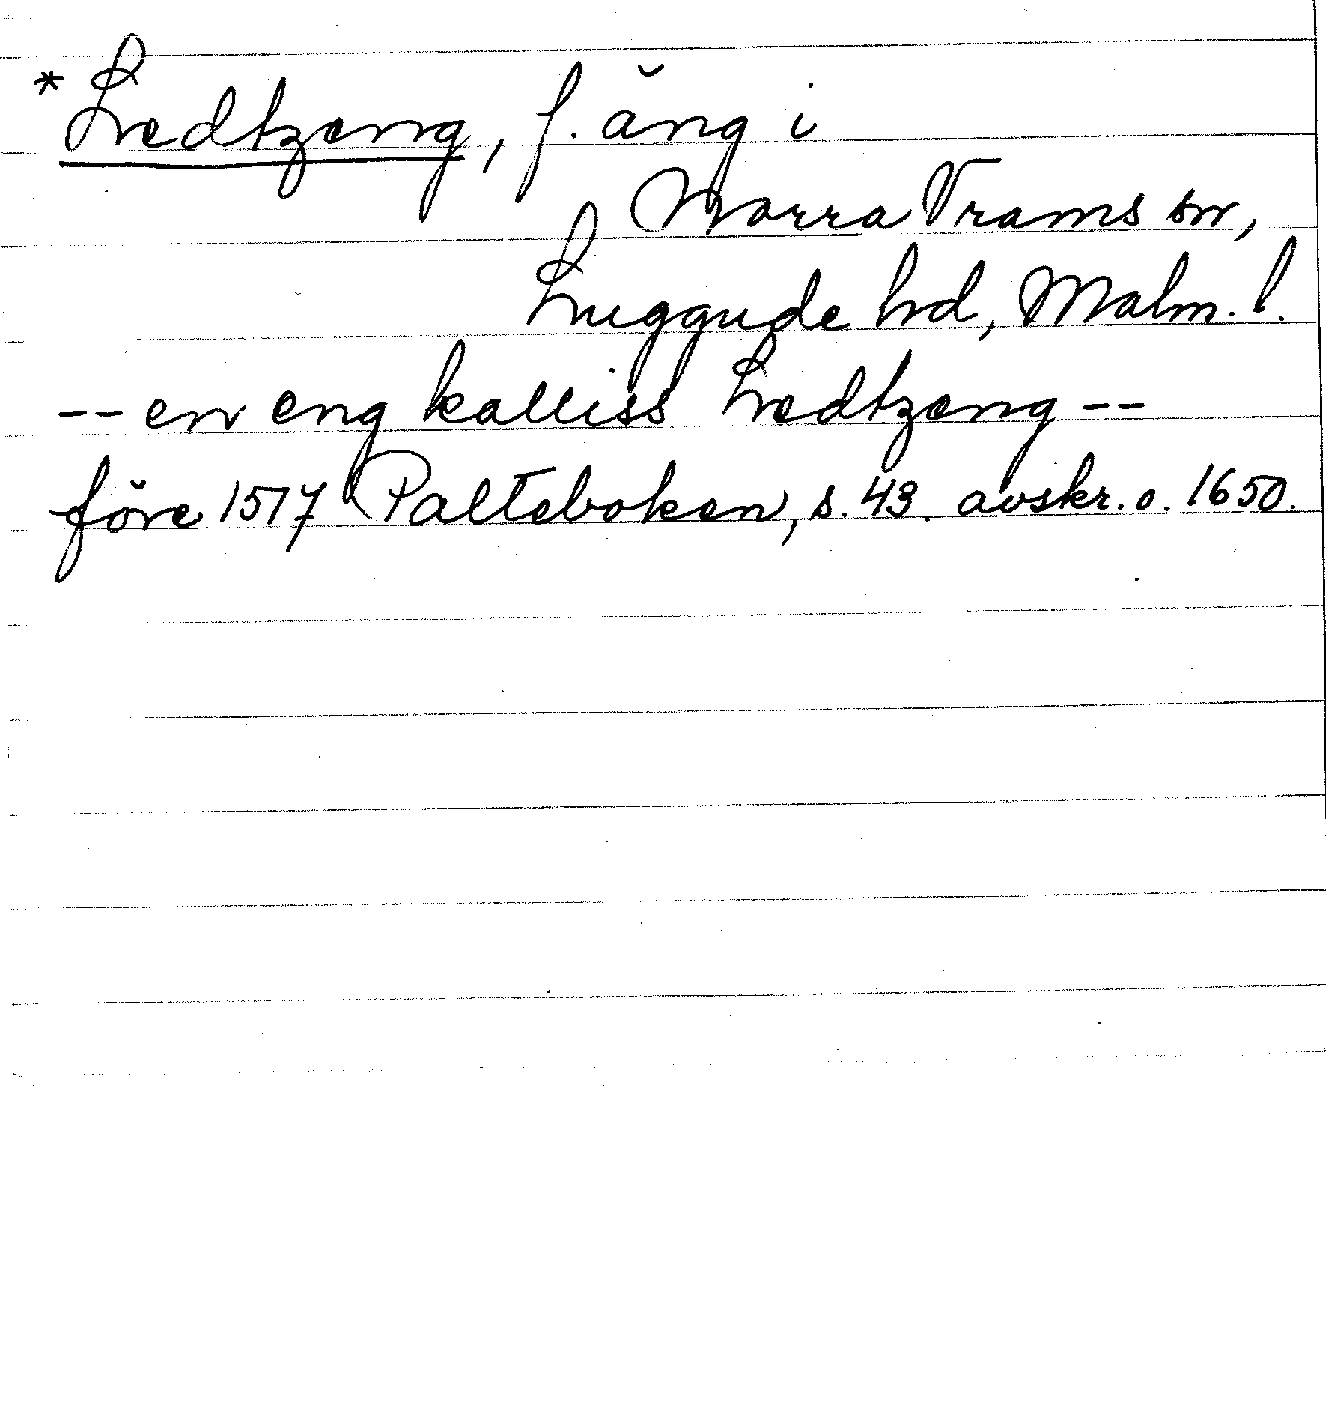 *Ledtzeng, f. äng i
Norra Vrams sn,
Luggude hd, Malm. l.
-- en eng kalliss Ledtzeng --
före 1517 Palteboken, s. 43. avskr. o. 1650.